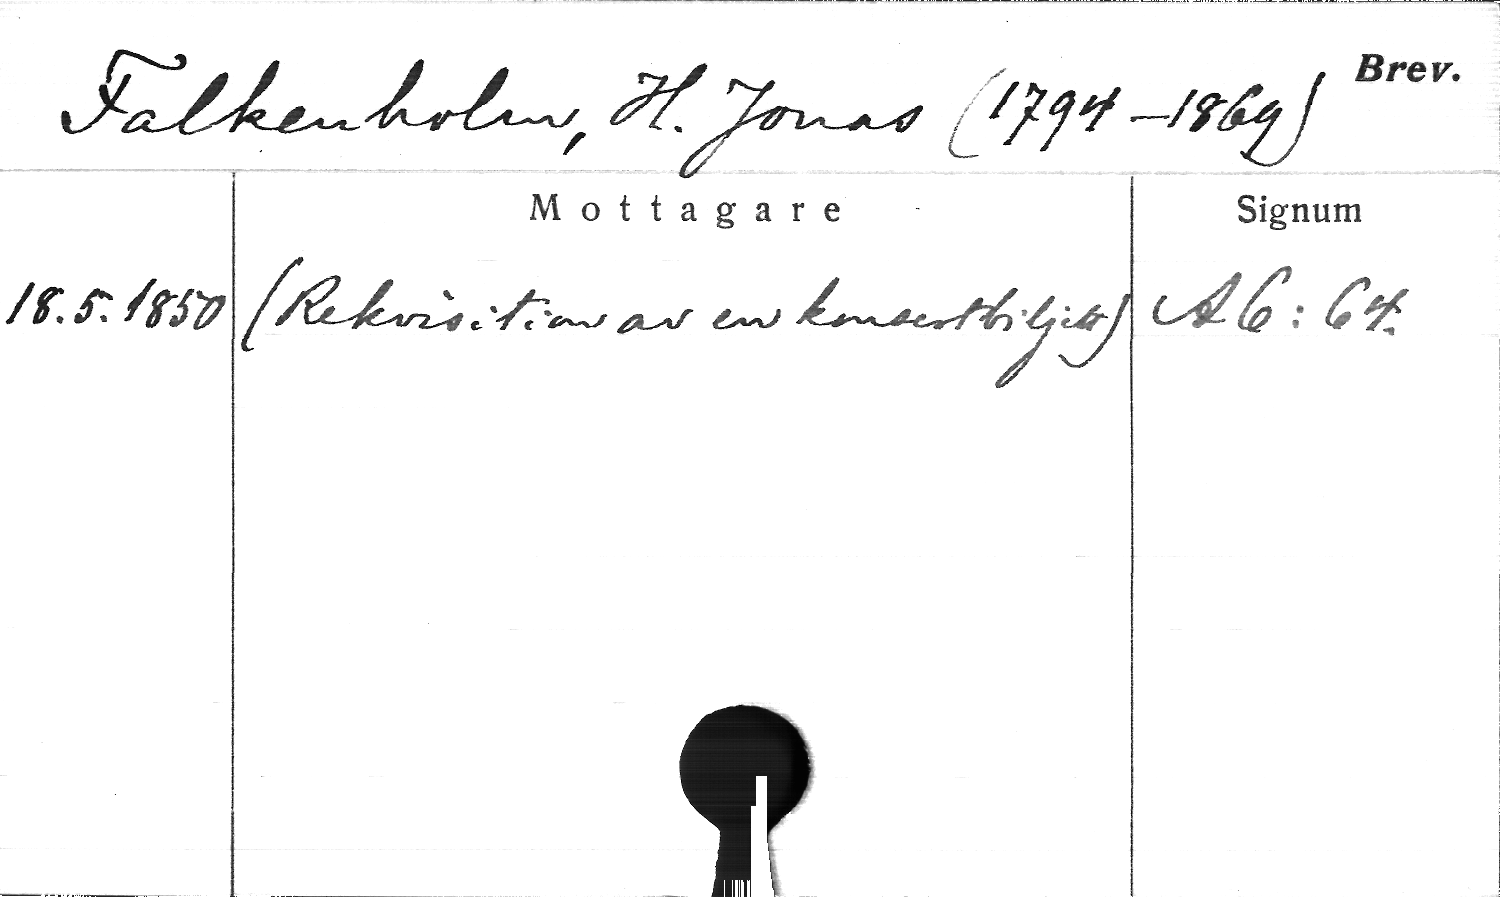 Falkenholm, H. Jonas (1794–1869) Brev.
Mottagare Signum
18.5.1850 (Rekvisition av en konsertbiljett) A6:64.